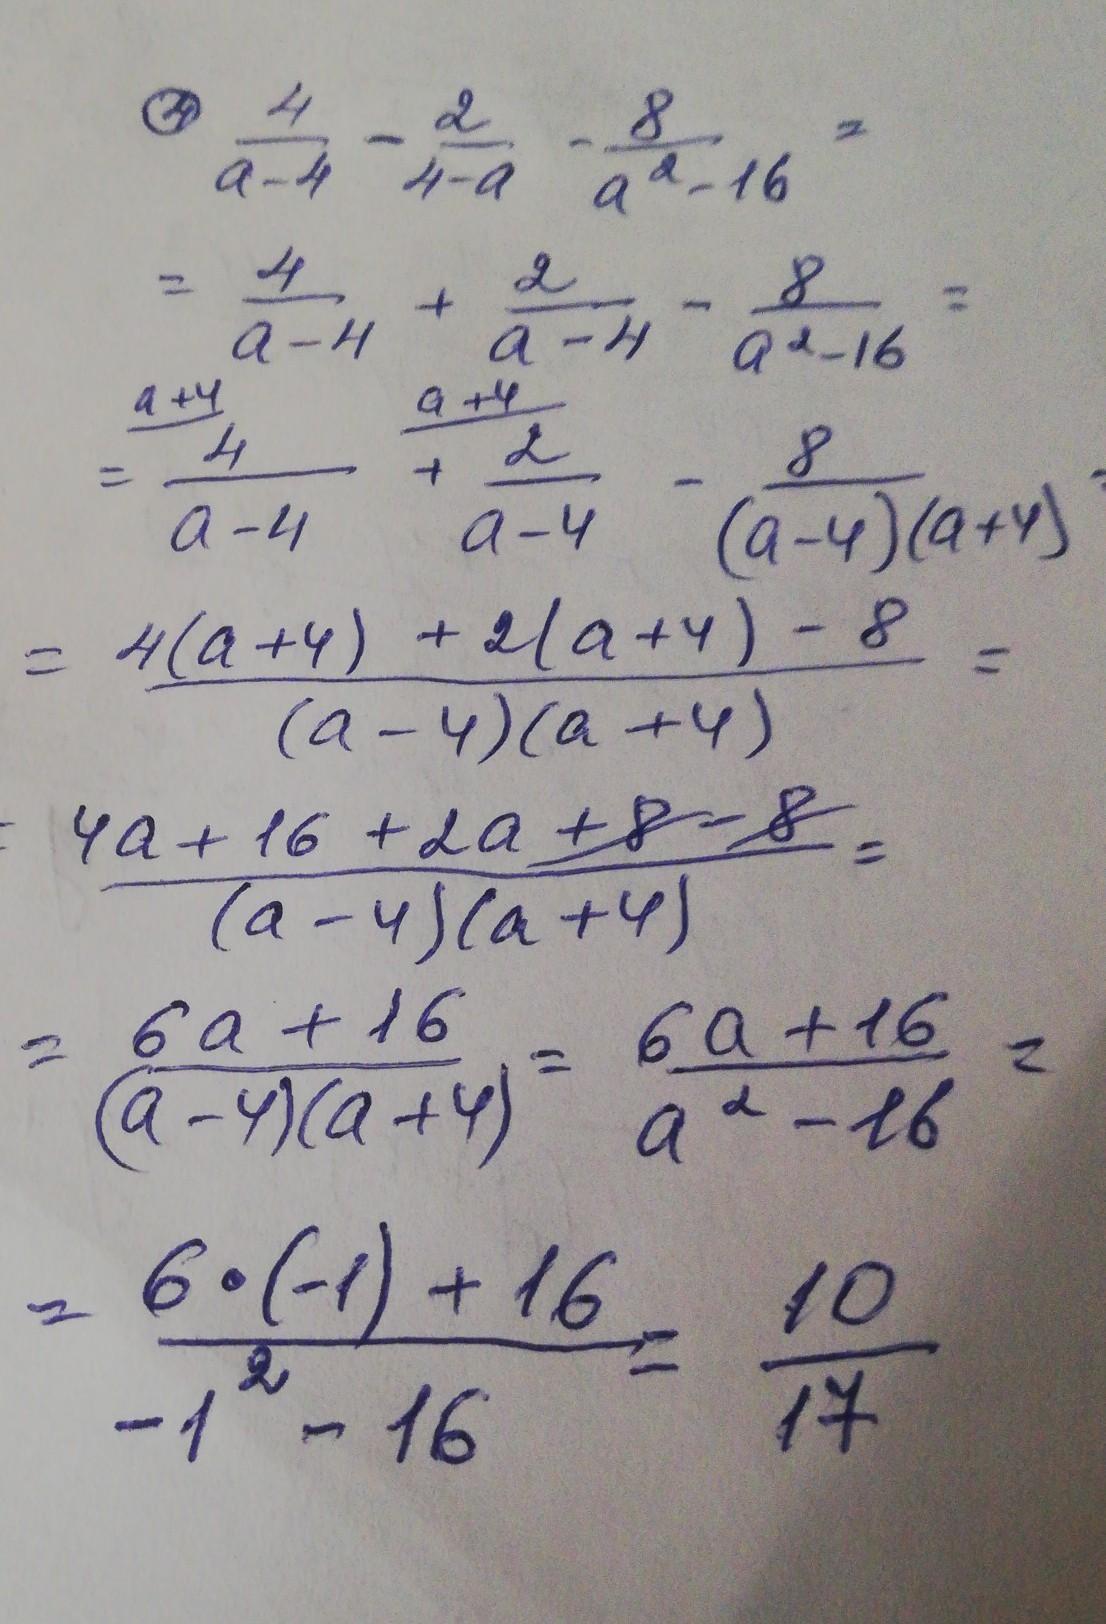 ④ 4/(a-4) - 2/(4-a) - 8/(a²-16) =
= 4/(a-4) + 2/(a-4) - 8/(a²-16) =
a+4 a+4
= 4/(a-4) + 2/(a-4) - 8/((a-4)(a+4)) =
= (4(a+4) + 2(a+4) - 8)/((a-4)(a+4)) =
= (4a+16+2a+8-8)/((a-4)(a+4)) =
= (6a+16)/((a-4)(a+4)) = (6a+16)/(a²-16) =
= (6•(-1)+16)/(-1²-16) = 10/17